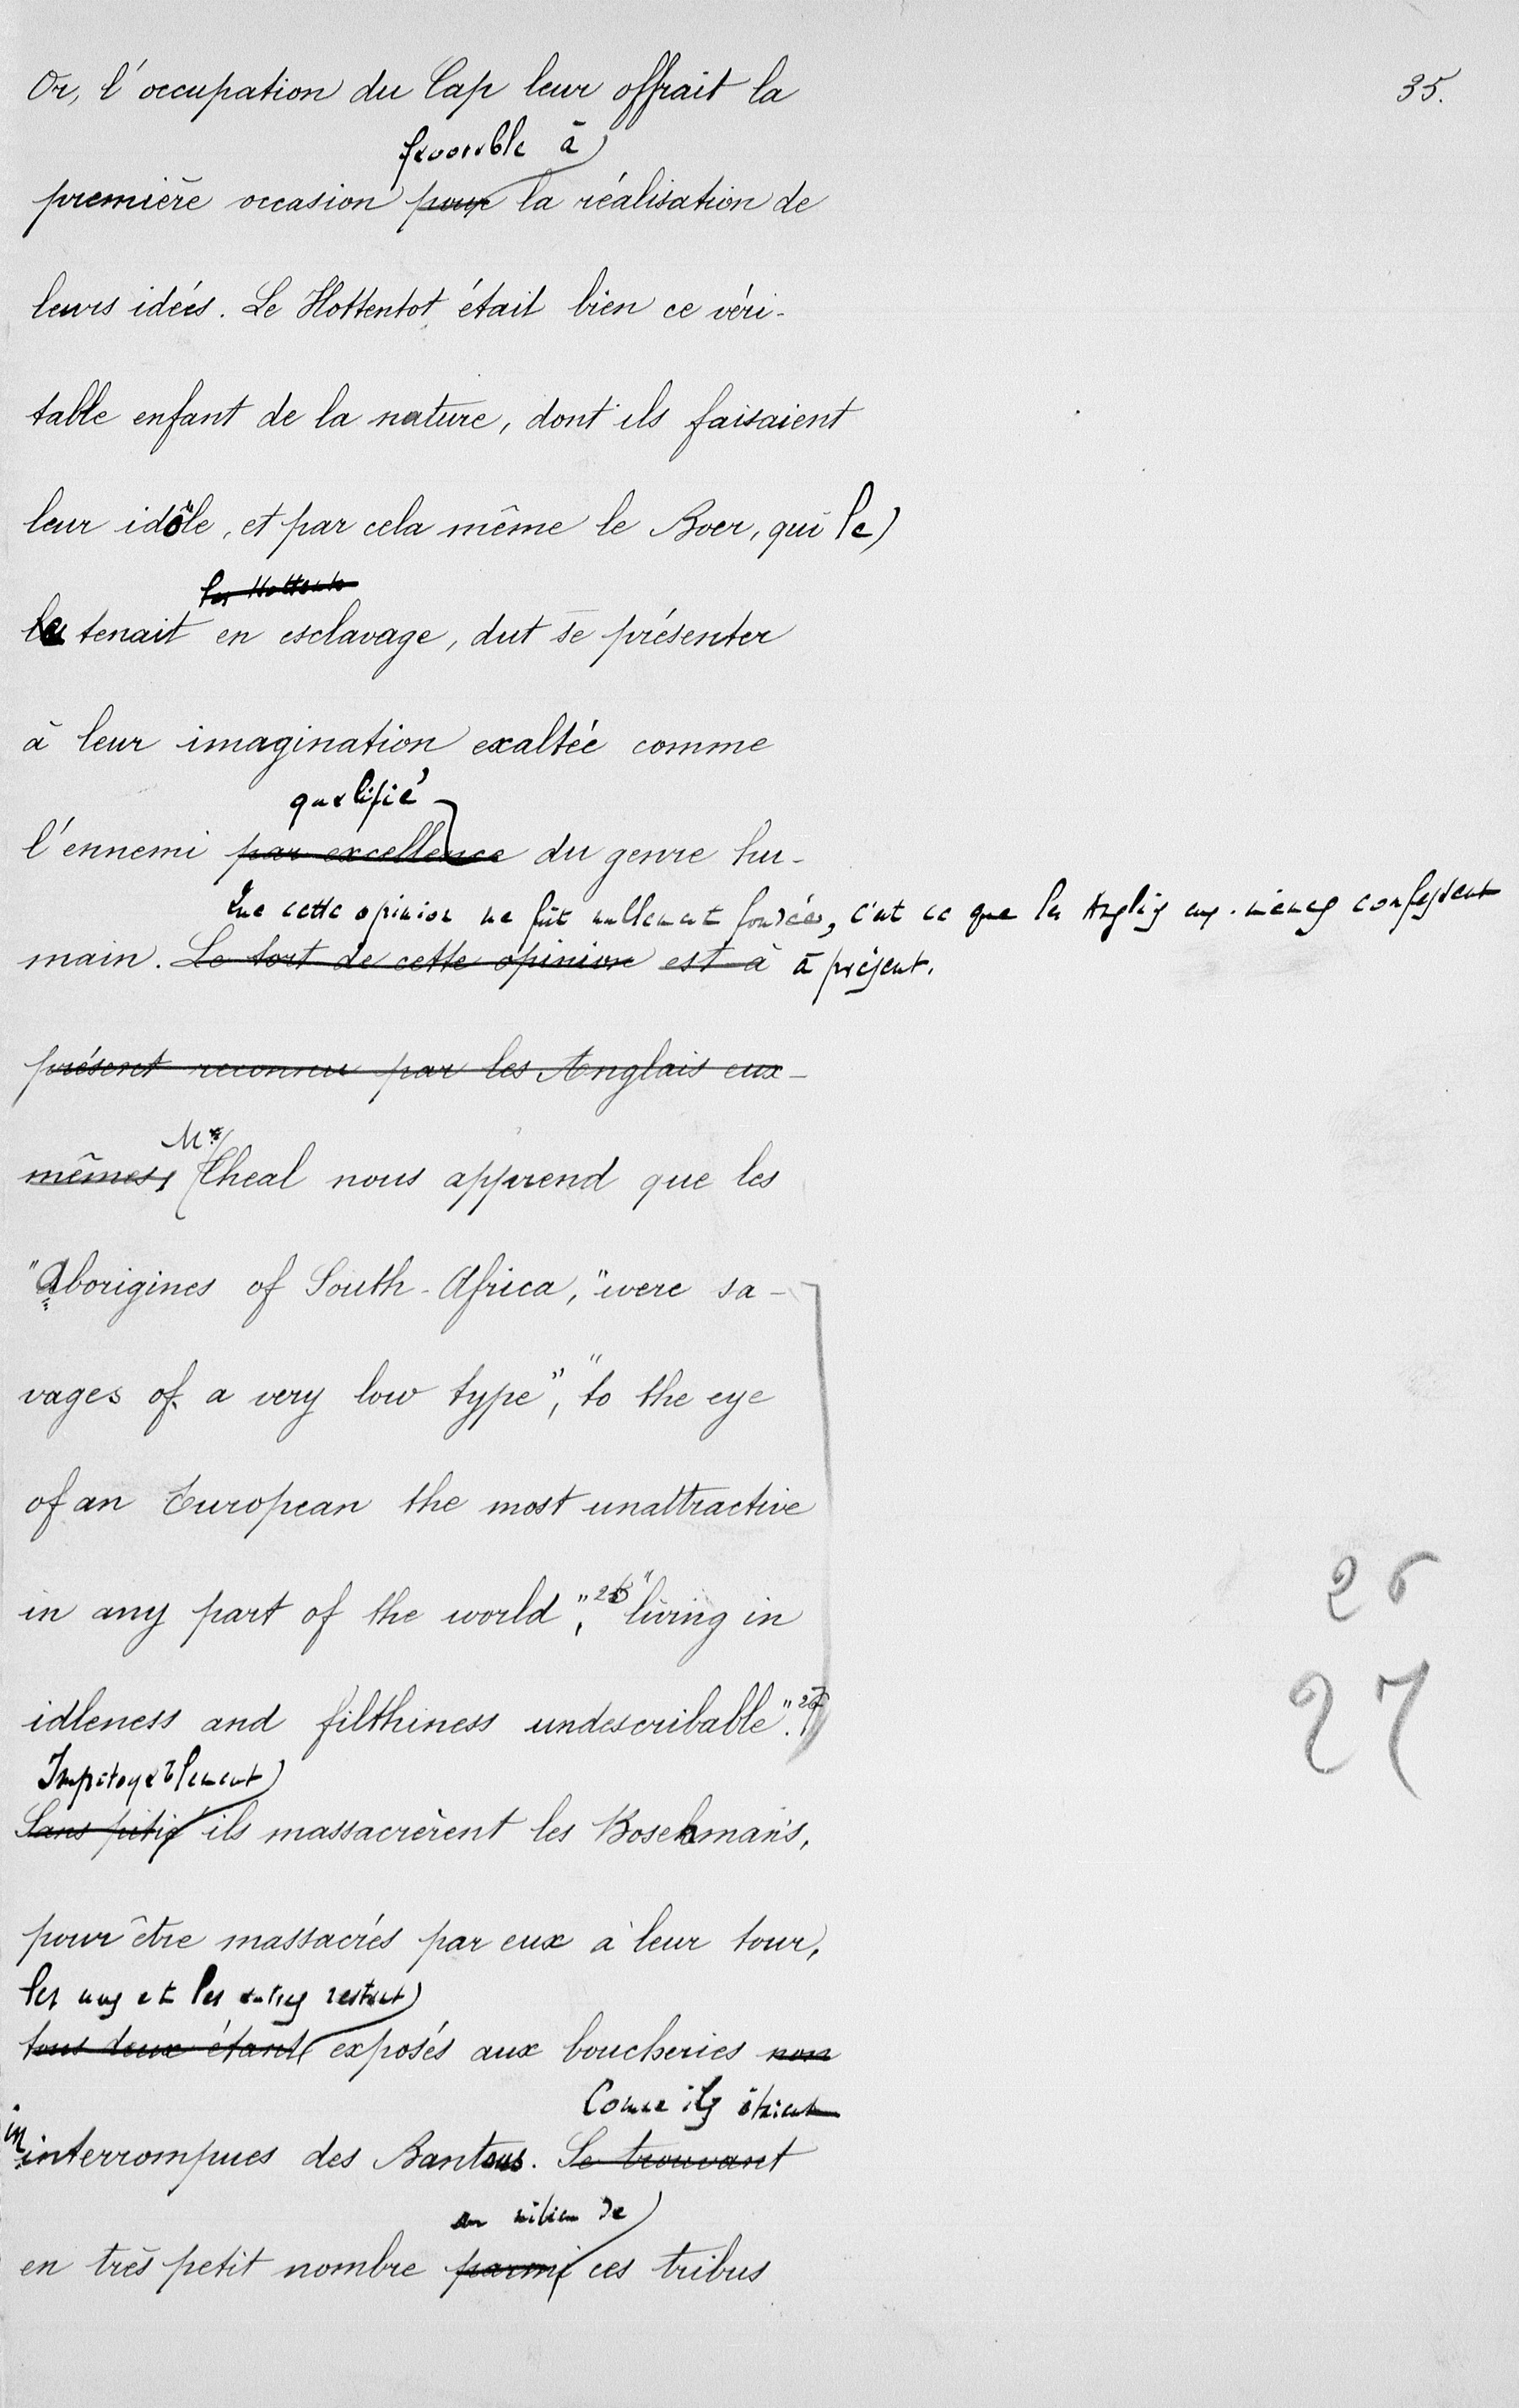 Or, l'occupation du Cap leur offrait la
35.
favorable à
première occasion pour la réalisation de
leurs idées. Le Hottentot était bien ce véri-
table enfant de la nature, dont ils faisaient
leur idôle, et par cela même le Boer, qui le
les Hottents
tenait en esclavage, dut se présenter
à leur imagination exaltée comme
qualifié
l'ennemi par excellence du genre hu-
Que cette opinion ne fût nullement fondée, c'est ce que les Anglais eux-mêmes confessent
main. Le tort de cette opinion est à à présent.
présent reconnu par les Anglais eux-
Mr.
mêmes, Theal nous apprend que les
"Aborigines of South-Africa, "were sa-
vages of a very low type", "to the eye
of an European the most unattractive
26
in any part of the world", 26 "living in
27
idleness and filthiness undescribable". 27
Impitoyablement
Sans pitié ils massacrèrent les Boschmans,
pour être massacrés par eux à leur tour,
les uns et les autres restant
tous deux étant exposés aux boucheries non
Comme ils étaient
in interrompues des Bantous. Se trouvant
au milieu de
en très petit nombre parmi ces tribus